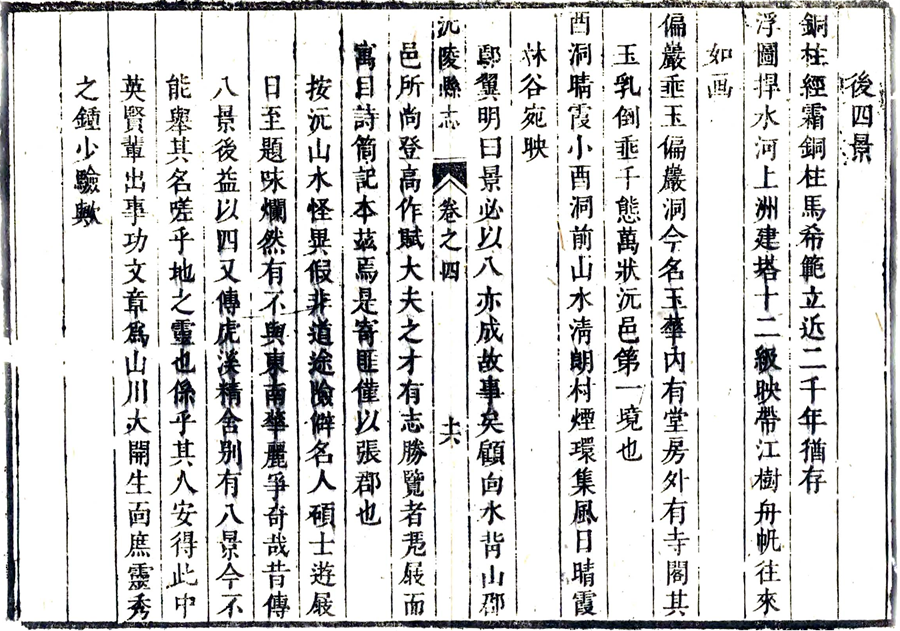 後四景
銅柱經霜銅柱馬希範立近二千年猶存
浮圖捍水河上洲建塔十二級映帶江樹舟帆往來
如画
偏巖垂玉偏巖洞今名玉華內有堂房外有寺閣其
玉乳倒垂千態萬狀沅邑第一境也
酉洞晴霞小酉洞前山水清朗村煙環集風日晴霞
林谷宛映
鄢翼明曰景必以八亦成故事矣顧向水背山郡
沅陵縣志
卷之四
十六
邑所尚登高作賦大夫之才有志勝覽者凭屐而
寓目詩简記本茲焉是寄匪僅以張郡也
按沅山水怪異假非道途險僻名人碩士遊屐
日至題味爛然有不與東南華麗爭奇哉昔傳
八景後益以四又傳虎溪精舍別有八景今不
能舉其名嗟乎地之靈也係乎其人安得此中
英賢輩出事功文章爲山川大開生面庶靈秀
之鍾少驗歟